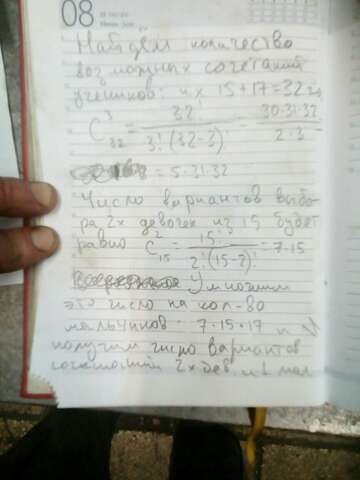 08
Найдём количество
возможных сочетаний
учеников: их 15+17=32
C³₃₂ = 32! / 3!·(32-3)! = 30·31·32 / 2·3
= 5·31·32
Число вариантов выбо
ра 2х девочек из 15 будет
равно C²₁₅ = 15! / 2!(15-2)! = 7·15
Умножим
это число на кол-во
мальчиков 7·15·17 и
получим число вариантов
сочетаний 2х дев. и 1 мал